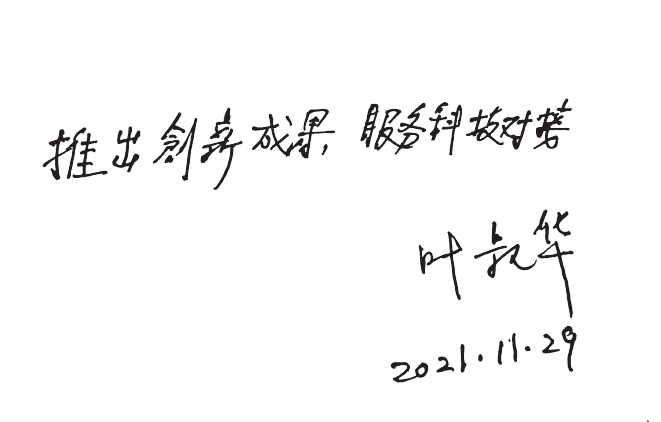 推出创新成果，服务科技对接
叶叔华
2021.11.29